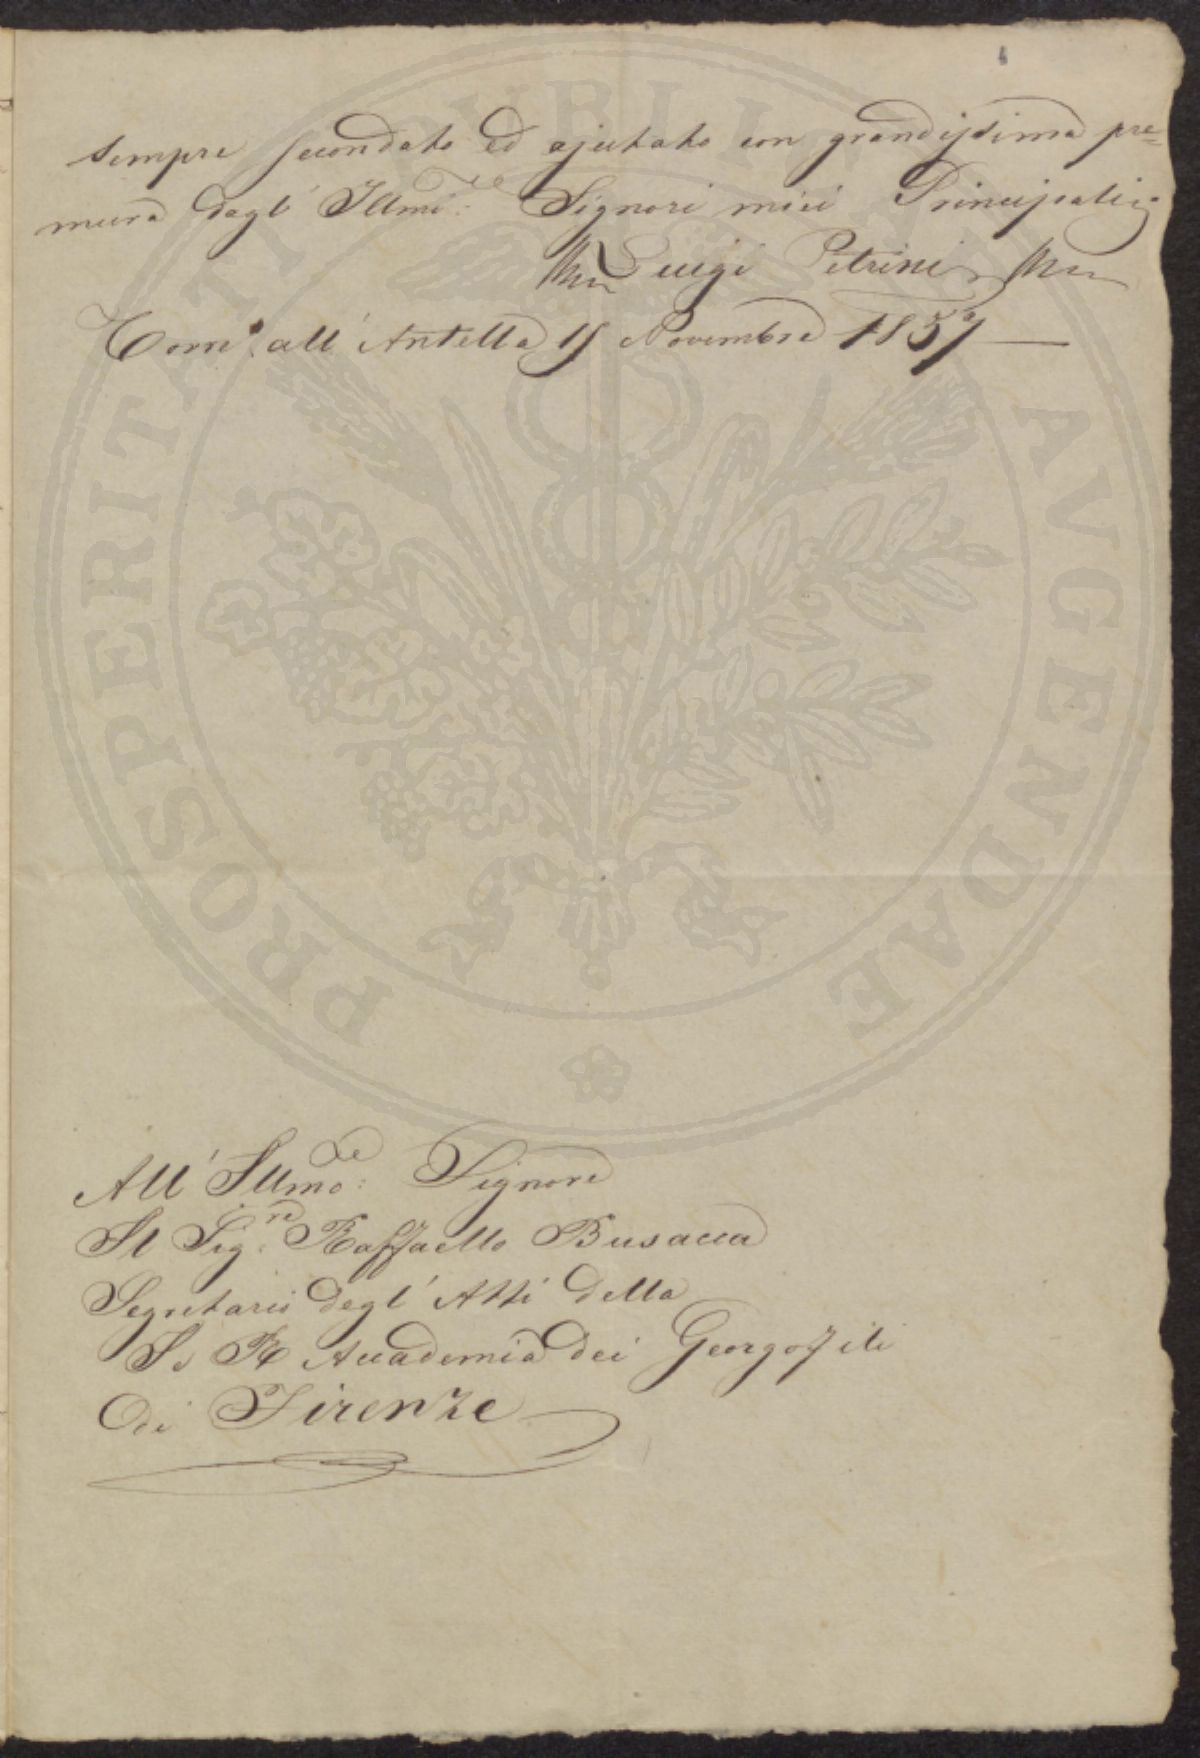 sempre secondato ed ajutato con grandissima pre=
mura dagl' Illmi: Signori miei Principali
Luigi Petrini
all' Antella Novembre 1857
All' Illmo: Signore
Il Sig:re Raffaello Busacca
Segretario degl' Atti della
R Accademia dei Georgofili
di Firenze
PROSPERITATI PUBLICAE AVGENDAE